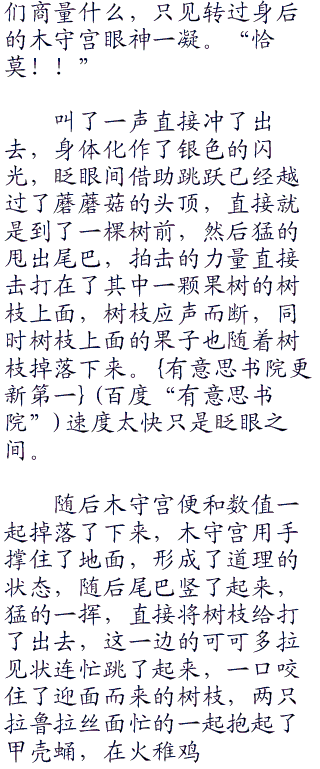 们商量什么，只见转过身后
的木守宫眼神一凝。“恰
莫！！”
叫了一声直接冲了出
去，身体化作了银色的闪
光，眨眼间借助跳跃已经越
过了蘑蘑菇的头顶，直接就
是到了一棵树前，然后猛的
甩出尾巴，拍击的力量直接
击打在了其中一颗果树的树
枝上面，树枝应声而断，同
时树枝上面的果子也随着树
枝掉落下来。{有意思书院更
新第一}（百度“有意思书
院”）速度太快只是眨眼之
间。
随后木守宫便和数值一
起掉落了下来，木守宫用手
撑住了地面，形成了道理的
状态，随后尾巴竖了起来，
猛的一挥，直接将树枝给打
了出去，这一边的可可多拉
见状连忙跳了起来，一口咬
住了迎面而来的树枝，两只
拉鲁拉丝面忙的一起抱起了
甲壳蛹，在火稚鸡